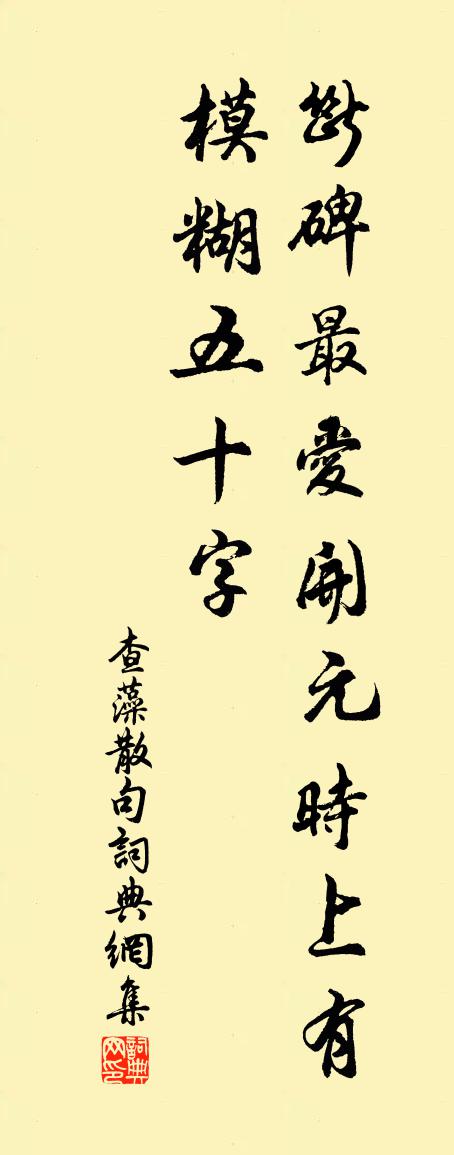 斷碑最愛開元時上有
模糊五十字
查藻散句詞典網集
詞典网印